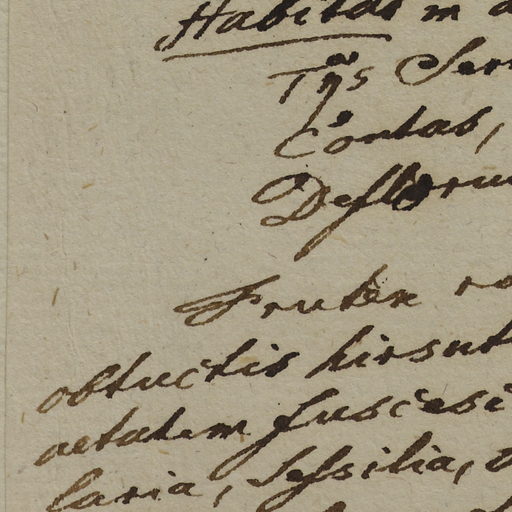 Habitat in a
Tij̃s Ser
Contas,
Defloru
Frutex ra
obtuctis hirsut
aetatem fuscesi
laria, Sessilia, o